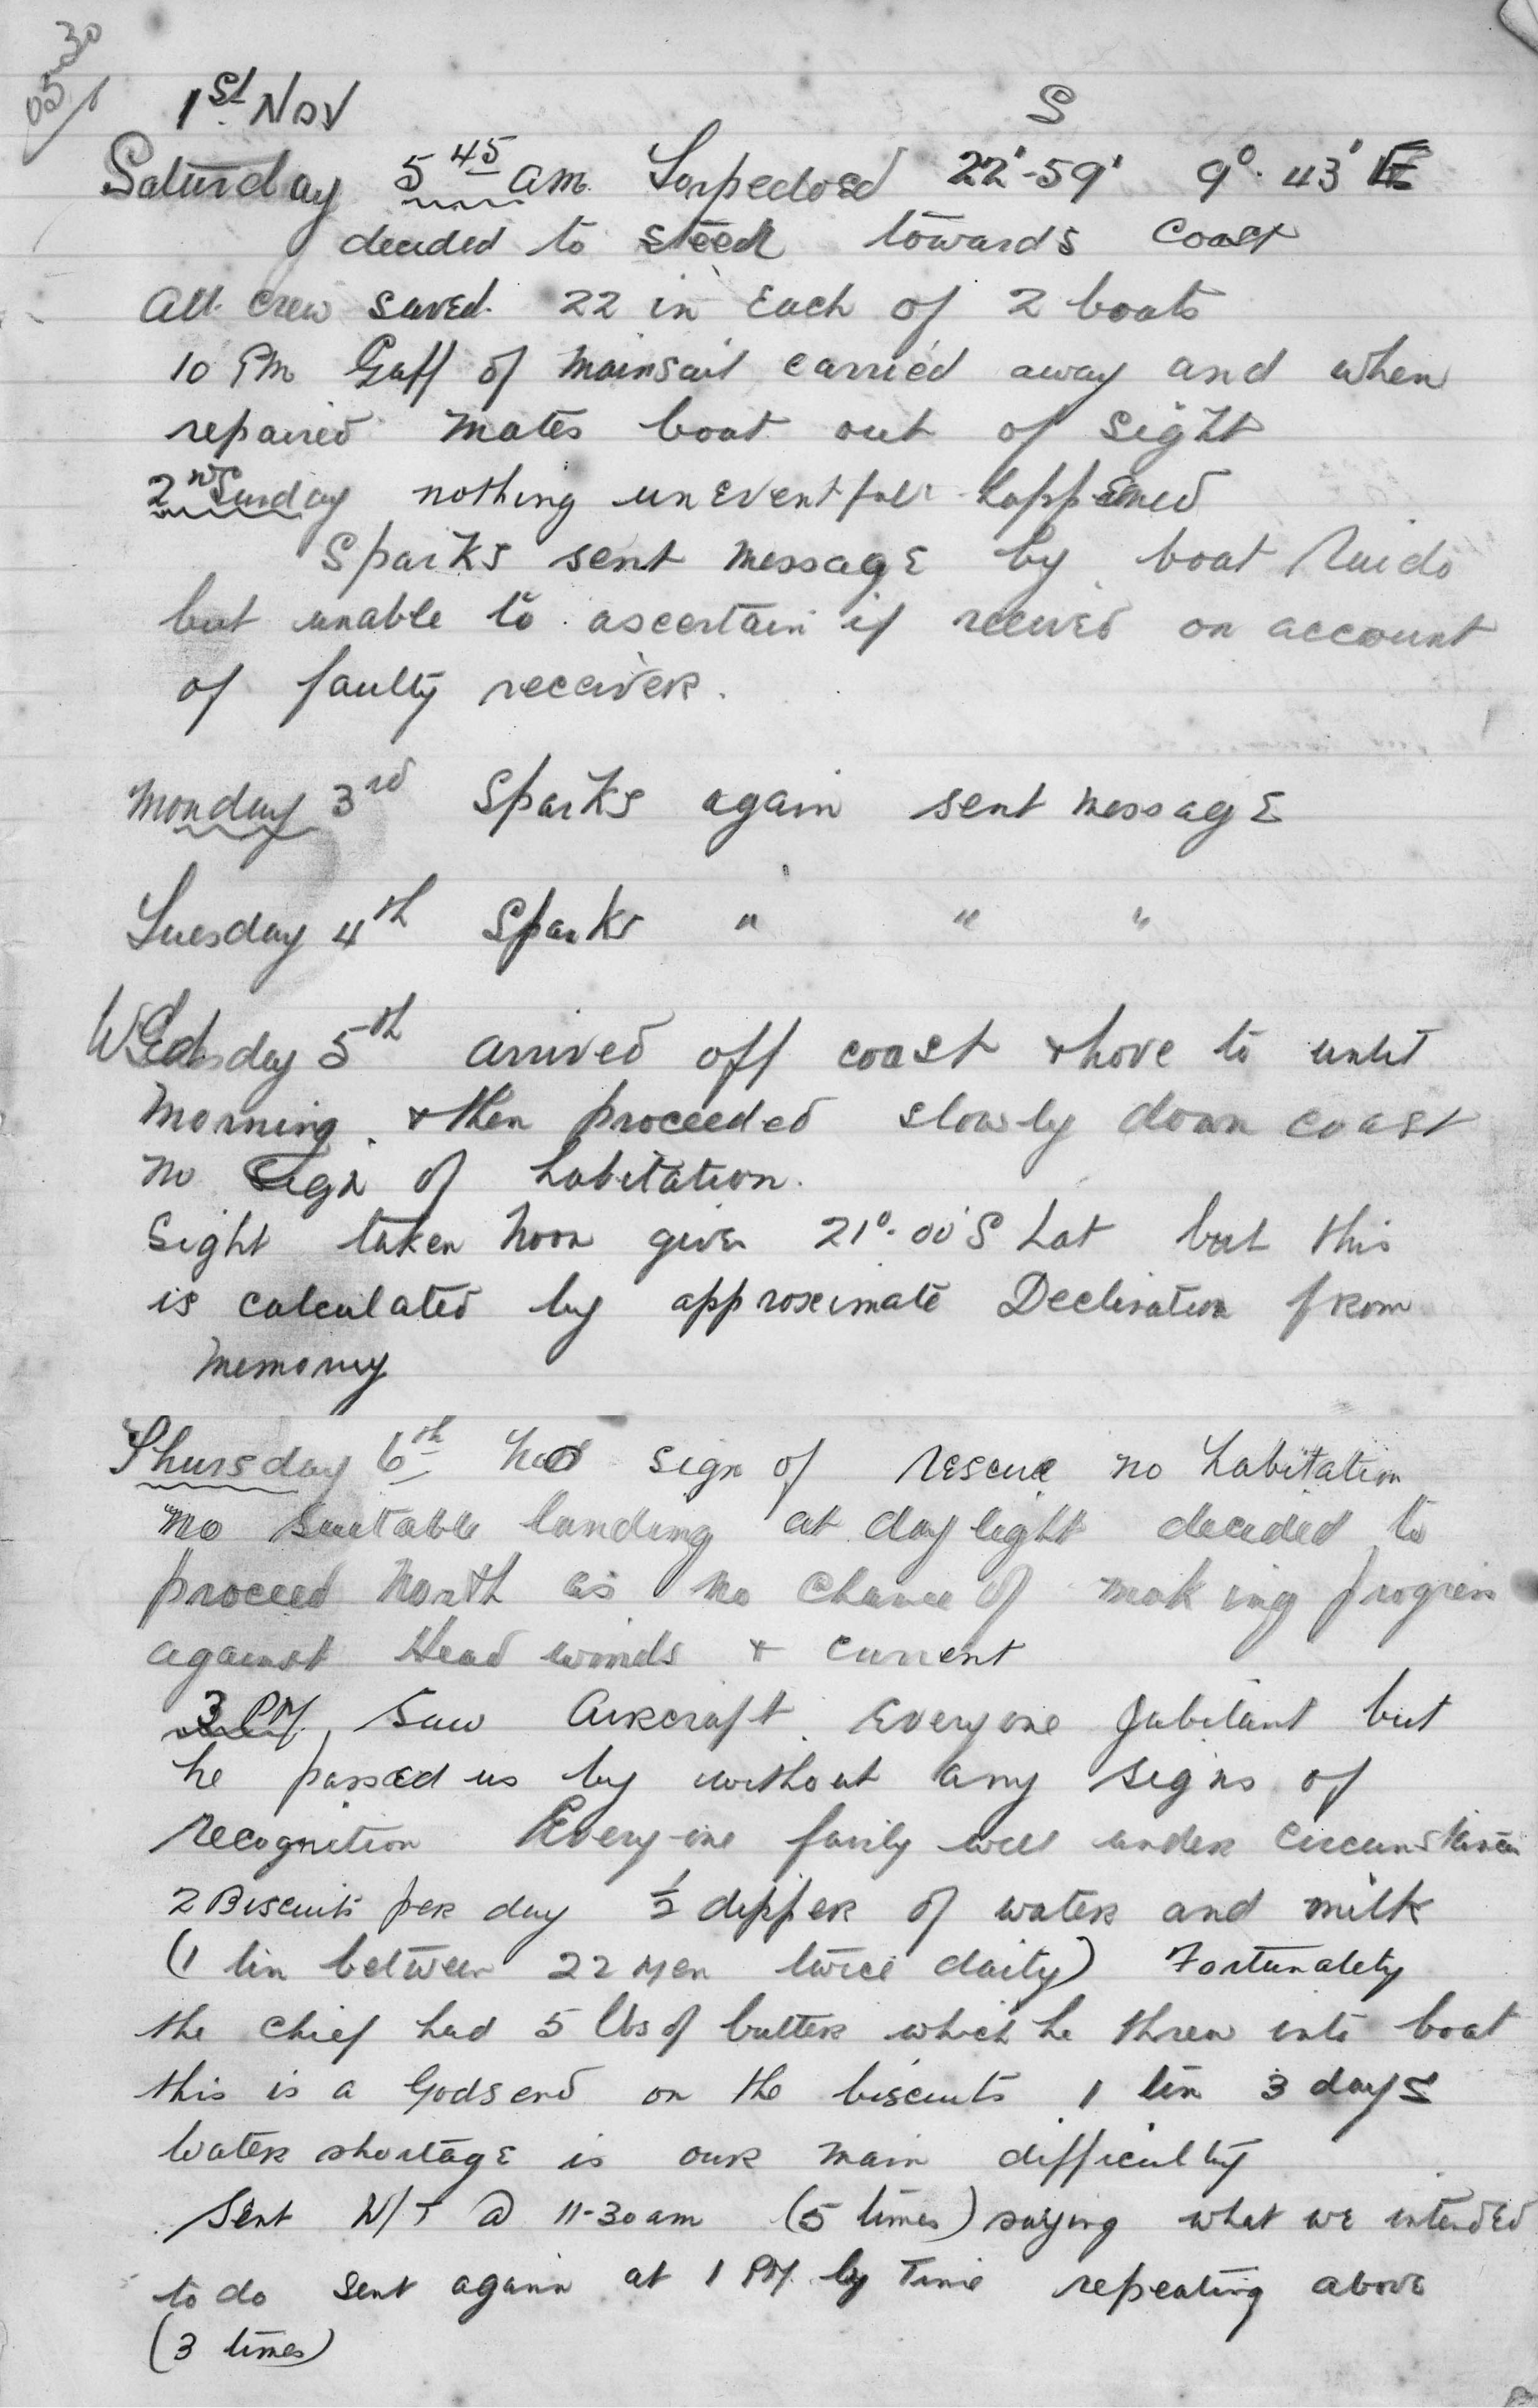 0530
1st Nov
S
Saturday 5 45 am. Torpedoed 22°-59' 9°. 43' E
decided to steer towards coast
All crew saved. 22 in Each of 2 boats
10 PM Gaff of mainsail carried away and when
repaired mates boat out of sight
2nd Sunday nothing unEventful happened
Sparks sent messagE by boat Raido
but unable to ascertain if received on account
of faulty receiver.
Monday 3rd Sparks again sent messagE
Tuesday 4th Sparks " " "
Wedsday 5th arrived off coast & hove to until
morning. & then proceeded slowly down coast
no sign of habitation.
Sight taken Noon given 21°.00'S Lat but this
is calculated by approximate Declination from
memory
Thursday 6th No sign of rescue no habitation
no suitable landing at daylight decided to
proceed North as no chance of making progress
against Head winds & current
3 PM, Saw Aircraft. Everyone Jubilant but
he passed us by without any signs of
recognition Every-one fairly well under circumstances
2 Biscuits per day ½ dipper of water and milk
(1 tin between 22 men twice daily) Fortunately
the chief had 5 lbs of butter which he threw into boat
this is a Godsend on the biscuits 1 tin 3 days
Water shortage is our main difficulty
Sent W/T @ 11-30 am (5 times) saying what we intended
to do Sent again at 1 PM. by Time repeating above
(3 times)